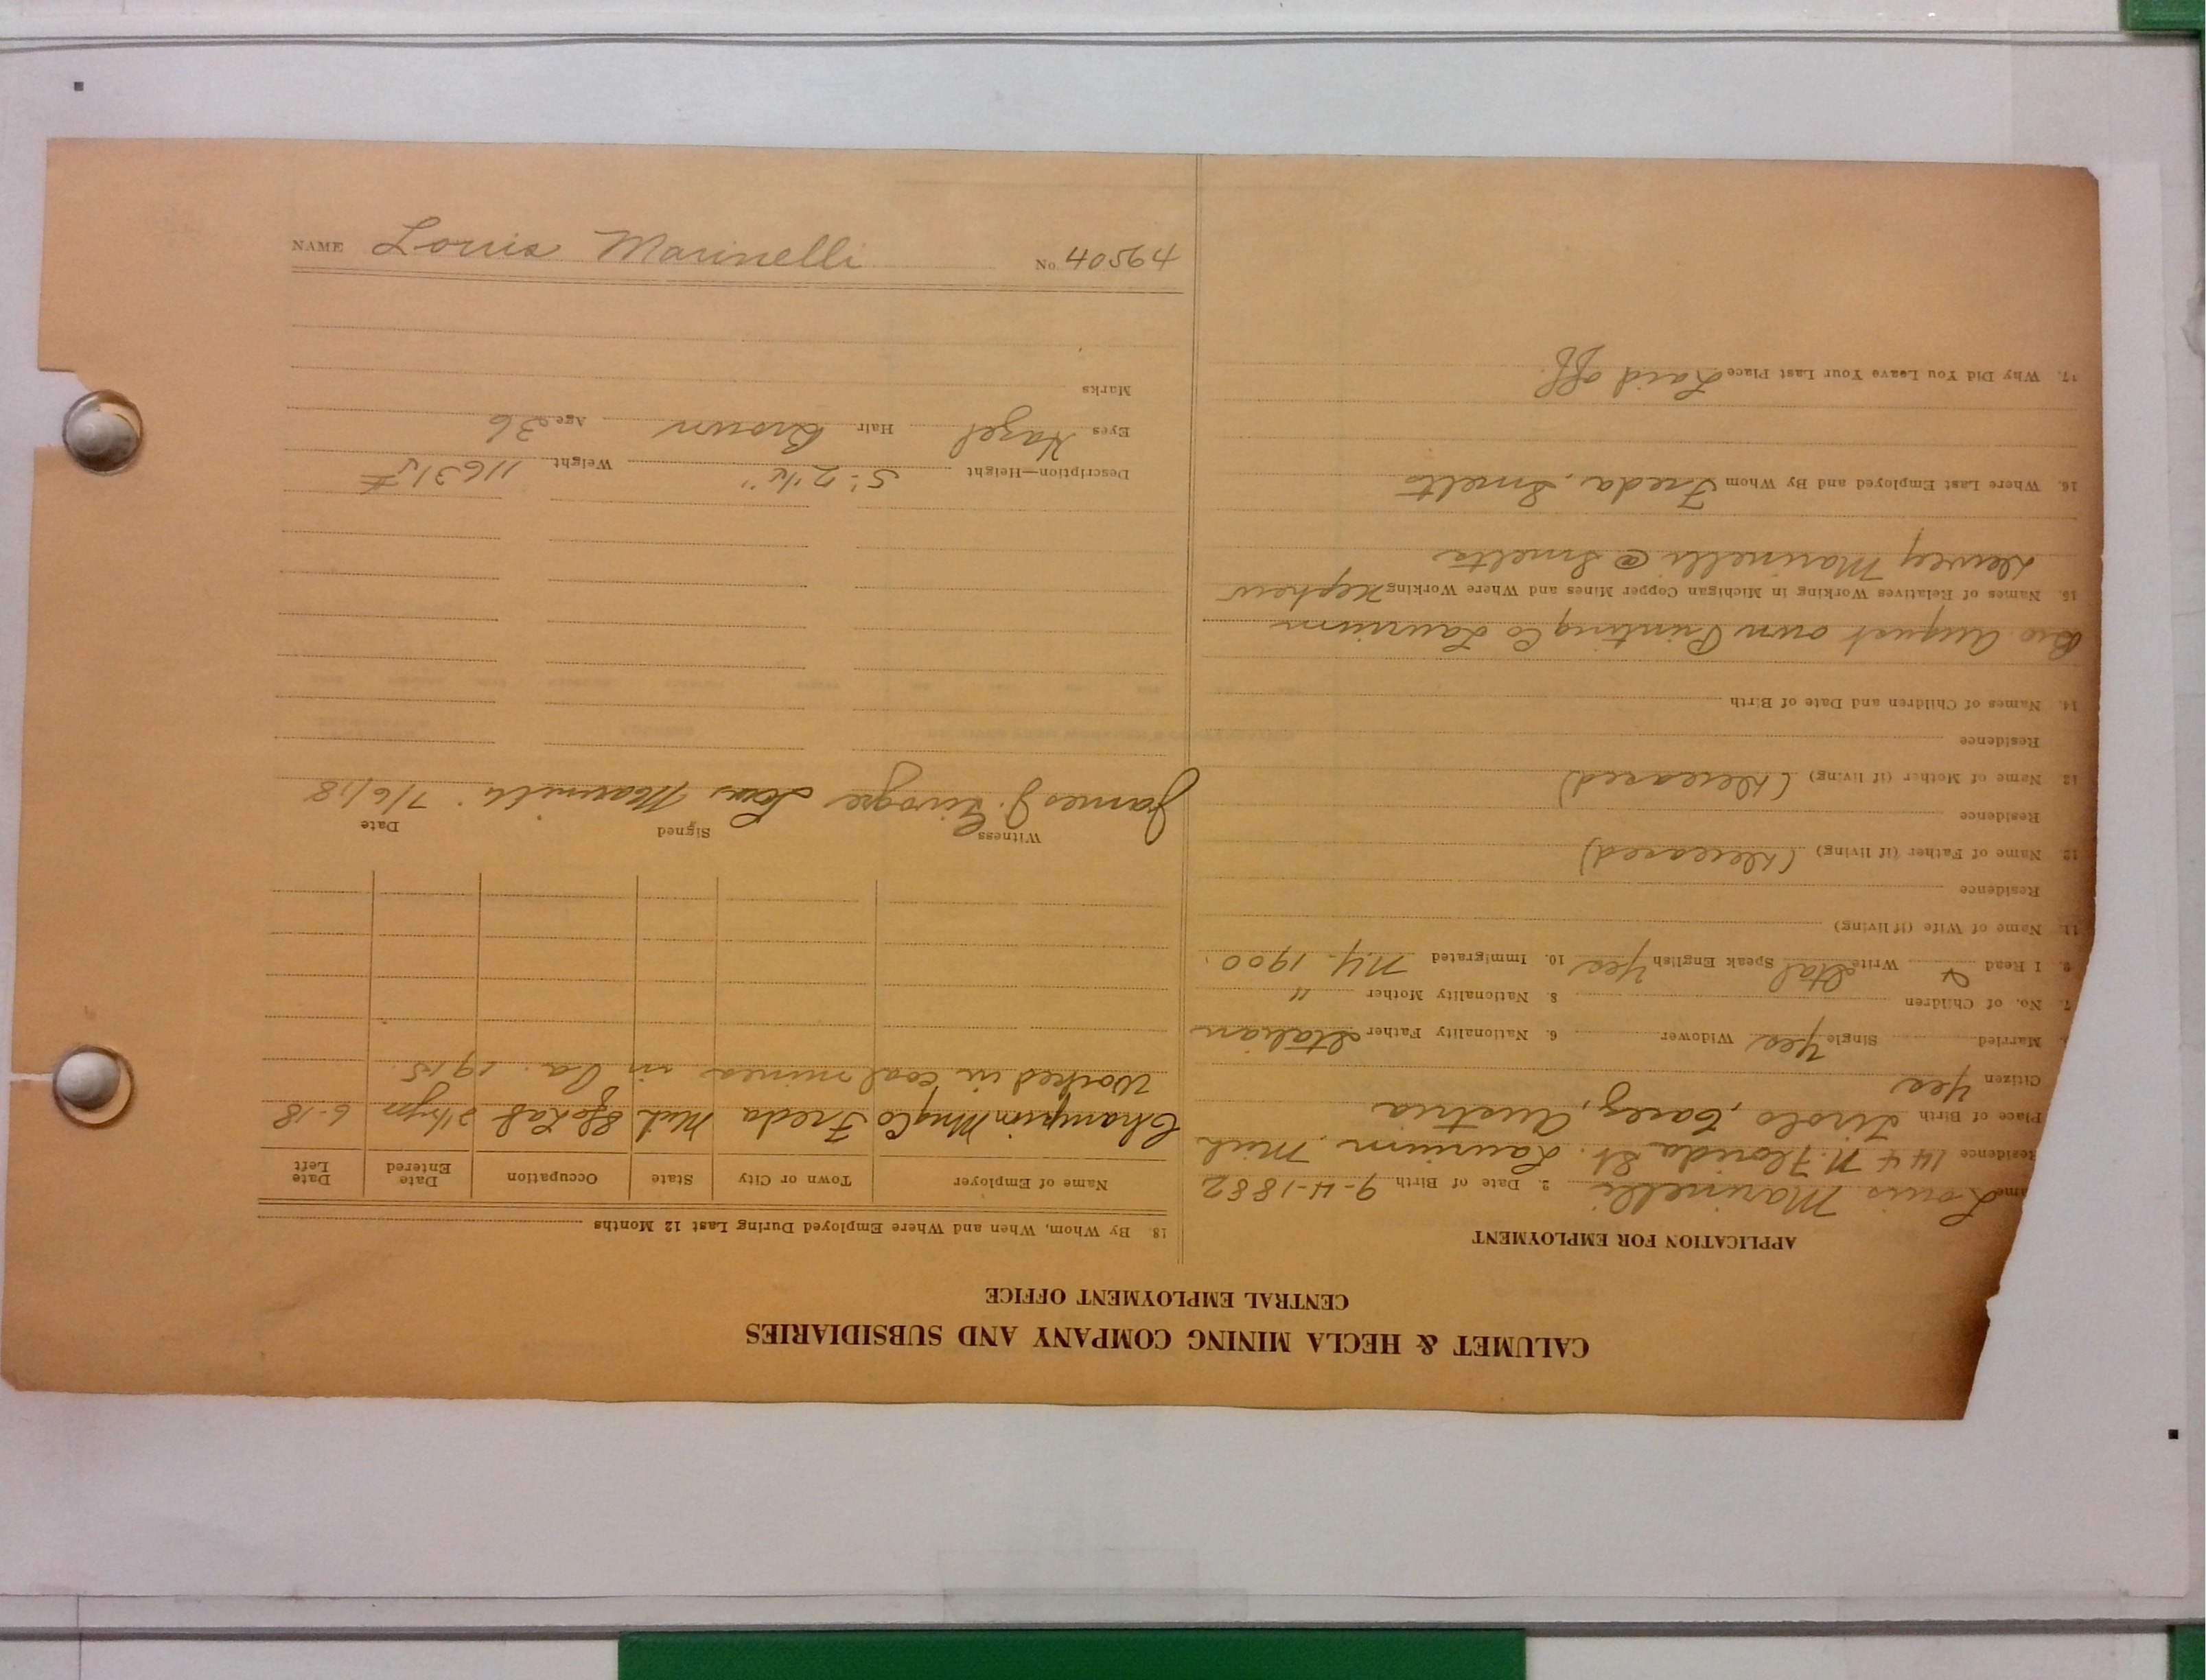 NAME Louis Marinelli No. 40564
CALUMET & HECLA MINING COMPANY AND SUBSIDIARIES
CENTRAL EMPLOYMENT OFFICE
APPLICATION FOR EMPLOYMENT
ame Louis Marinelli 2. Date of Birth 9-4-1882
Residence 144 N. Florida St. Laurium Mich
Place of Birth Tirolo, Austria
Citizen Yes
Married Single Yes Widower 6. Nationality Father Italian
7. No. of Children 8. Nationality Mother "
9. I Read & Write Ital Speak English Yes 10. Immigrated N.Y. 1900.
11. Name of Wife (if living)
Residence
12. Name of Father (if living) (Deceased)
Residence
13. Name of Mother (if living) (Deceased)
Residence
14. Names of Children and Date of Birth
Bro August own Printing Co Laurium
15. Names of Relatives Working in Michigan Copper Mines and Where Working Nephew
Dewey Marinelli @ Smelts
16. Where Last Employed and By Whom Freda, Smelts
17. Why Did You Leave Your Last Place Laid off.
18 By Whom, When and Where Employed During Last 12 Months
Name of Employer Town or City State Occupation Date Entered Date Left
Champion Mng Co Freda Mich Sfc Lab 2½ yrs 6-18
Worked in coal mines in Pa. 1915.
Witness Signed Date
James J. Louis Marinelli 7/6/18
Description—Height 5'-2½" Weight
Eyes Hazel Hair Brown Age 36
Marks